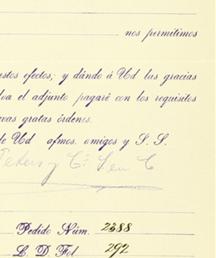 nos permitimos
ustos efectos; y dándo á Ud las gracias
lva el adjunto pagaré con los requisitos
evas gratas órdenes.
de Ud afmos. amigos y S. S.
Pedido Núm. 2388
L. D. Fol. 292